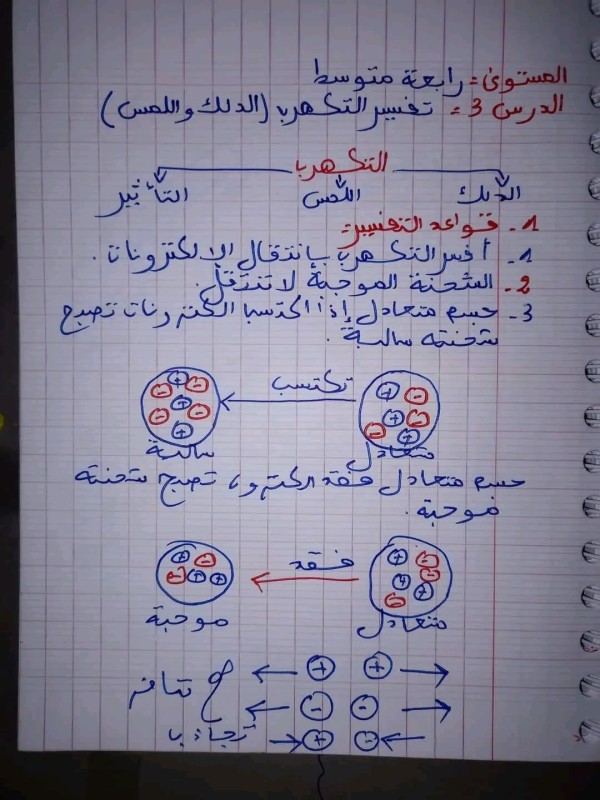 المستوى = رابعة متوسط
الدرس 3 = تفسير التكهرب (الدلك واللمس)
التكهرب
الدلك اللمس التأثير
1- قواعد التفسير =
1- أفسر التكهرب بإنتقال الإلكترونات.
2- الشحنة الموجبة لا تنتقل.
3- جسم متعادل إذا اكتسب الكترونات تصبح
شحنته سالبة.
تكتسب
+ - + - - + متعادل
+ - - + - - + سالبة
جسم متعادل فقد الكترون، تصبح شحنته
موجبة.
فقد
+ - - + + - متعادل
+ - - + + موجبة
+ + تنافر
- -
+ - تجاذب